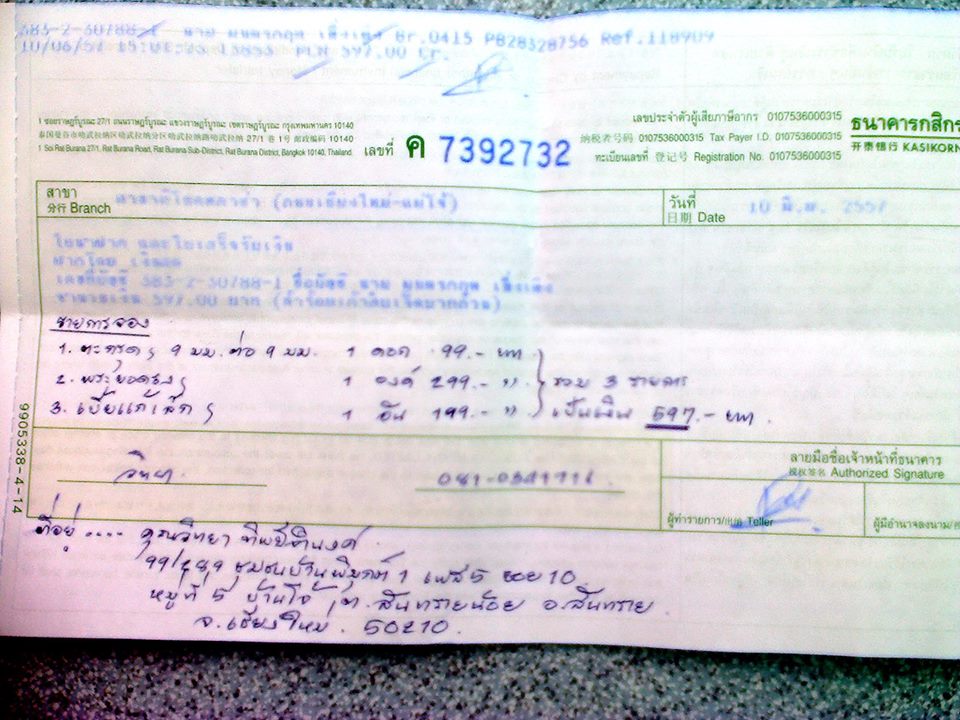 383-2-30788-1 นาย Br.0415 PB28328756 Ref.118909
10/06/57 597.00 Cr.
1 ซอยราษฎร์บูรณะ 27/1 ถนนราษฎร์บูรณะ แขวงราษฎร์บูรณะ เขตราษฎร์บูรณะ กรุงเทพมหานคร 10140
泰国曼谷市叻武拉纳区叻武拉纳分区叻武拉纳路叻武拉纳 27/1 巷 1 号 邮政编码 10140
1 Soi Rat Burana 27/1, Rat Burana Road, Rat Burana Sub-District, Rat Burana District, Bangkok 10140, Thailand.
เลขที่ ค 7392732
เลขประจำตัวผู้เสียภาษีอากร 0107536000315
纳税者号码 0107536000315 Tax Payer I.D. 0107536000315
ทะเบียนเลขที่ 登记号 Registration No. 0107536000315
ธนาคารกสิกร
开泰银行 KASIKORN
สาขา
分行 Branch
(ถนนเชียงใหม่-แม่โจ้)
วันที่
日期 Date
10 มิ.ย. 2557
ใบนำฝาก และใบเสร็จรับเงิน
ฝากโดย เงินสด
เลขที่บัญชี 383-2-30788-1 ชื่อบัญชี นาย
จำนวนเงิน 597.00 บาท (ห้าร้อยเก้าสิบเจ็ดบาทถ้วน)
รายการจอง
1. ตะกรุดฯ 9 มม. ต่อ 9 มม. 1 ดอก 99.- บาท
2. 1 องค์ 299.- " รวม 3 รายการ
3. เบี้ยแก้เล็กฯ 1 อัน 199.- " เป็นเงิน 597.- บาท
วิทยา
ลายมือชื่อเจ้าหน้าที่ธนาคาร
授权签名 Authorized Signature
ผู้ทำรายการ/ Teller
ผู้มีอำนาจลงนาม/
9905338-4-14
ที่อยู่ .... คุณวิทยา
ชุมชนบ้าน 1 เฟส 5 ซอย 10
หมู่ที่ 5 บ้านโจ้ ต. สันทรายน้อย อ.สันทราย
จ.เชียงใหม่. 50210.